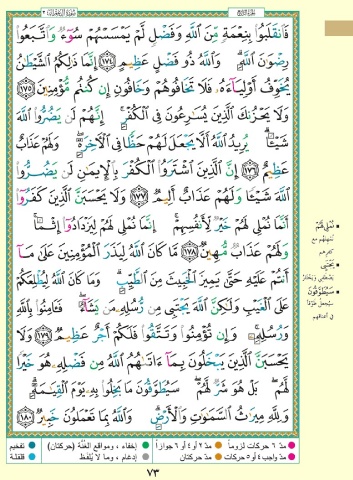 فَٱنقَلَبُوا۟ بِنِعْمَةٍ مِّنَ ٱللَّهِ وَفَضْلٍ لَّمْ يَمْسَسْهُمْ سُوٓءٌ وَٱتَّبَعُوا۟
رِضْوَٰنَ ٱللَّهِ ۗ وَٱللَّهُ ذُو فَضْلٍ عَظِيمٍ ١٧٤ إِنَّمَا ذَٰلِكُمُ ٱلشَّيْطَٰنُ
يُخَوِّفُ أَوْلِيَآءَهُۥ فَلَا تَخَافُوهُمْ وَخَافُونِ إِن كُنتُم مُّؤْمِنِينَ ١٧٥
وَلَا يَحْزُنكَ ٱلَّذِينَ يُسَٰرِعُونَ فِى ٱلْكُفْرِ ۚ إِنَّهُمْ لَن يَضُرُّوا۟ ٱللَّهَ
شَيْـًٔا ۗ يُرِيدُ ٱللَّهُ أَلَّا يَجْعَلَ لَهُمْ حَظًّا فِى ٱلْءَاخِرَةِ ۖ وَلَهُمْ عَذَابٌ
عَظِيمٌ ١٧٦ إِنَّ ٱلَّذِينَ ٱشْتَرَوُا۟ ٱلْكُفْرَ بِٱلْإِيمَٰنِ لَن يَضُرُّوا۟
ٱللَّهَ شَيْـًٔا وَلَهُمْ عَذَابٌ أَلِيمٌ ١٧٧ وَلَا يَحْسَبَنَّ ٱلَّذِينَ كَفَرُوٓا۟
أَنَّمَا نُمْلِى لَهُمْ خَيْرٌ لِّأَنفُسِهِمْ ۚ إِنَّمَا نُمْلِى لَهُمْ لِيَزْدَادُوٓا۟ إِثْمًا ۚ
وَلَهُمْ عَذَابٌ مُّهِينٌ ١٧٨ مَّا كَانَ ٱللَّهُ لِيَذَرَ ٱلْمُؤْمِنِينَ عَلَىٰ مَآ
أَنتُمْ عَلَيْهِ حَتَّىٰ يَمِيزَ ٱلْخَبِيثَ مِنَ ٱلطَّيِّبِ ۗ وَمَا كَانَ ٱللَّهُ لِيُطْلِعَكُمْ
عَلَى ٱلْغَيْبِ وَلَٰكِنَّ ٱللَّهَ يَجْتَبِى مِن رُّسُلِهِۦ مَن يَشَآءُ ۖ فَـَٔامِنُوا۟ بِٱللَّهِ
وَرُسُلِهِۦ ۚ وَإِن تُؤْمِنُوا۟ وَتَتَّقُوا۟ فَلَكُمْ أَجْرٌ عَظِيمٌ ١٧٩ وَلَا
يَحْسَبَنَّ ٱلَّذِينَ يَبْخَلُونَ بِمَآ ءَاتَىٰهُمُ ٱللَّهُ مِن فَضْلِهِۦ هُوَ خَيْرًا
لَّهُم ۖ بَلْ هُوَ شَرٌّ لَّهُمْ ۖ سَيُطَوَّقُونَ مَا بَخِلُوا۟ بِهِۦ يَوْمَ ٱلْقِيَٰمَةِ ۗ
وَلِلَّهِ مِيرَٰثُ ٱلسَّمَٰوَٰتِ وَٱلْأَرْضِ ۗ وَٱللَّهُ بِمَا تَعْمَلُونَ خَبِيرٌ ١٨٠
نُمْلِي لَهُمْ
نُمهلهم مع
كفرهم
يَجْتَبِي
يصطفي ويختار
سَيُطَوَّقُونَ
سيُجعل طوقًا
في أعناقهم
مدّ ٦ حركات لزوماً
مدّ ٢ أو ٤ أو ٦ جوازاً
إخفاء، ومواقع الغُنَّة (حركتان)
تفخيم
مدّ واجب ٤ أو ٥ حركات
مدّ حركتان
إدغام، وما لا يُلفَظ
قلقلة
٧٣